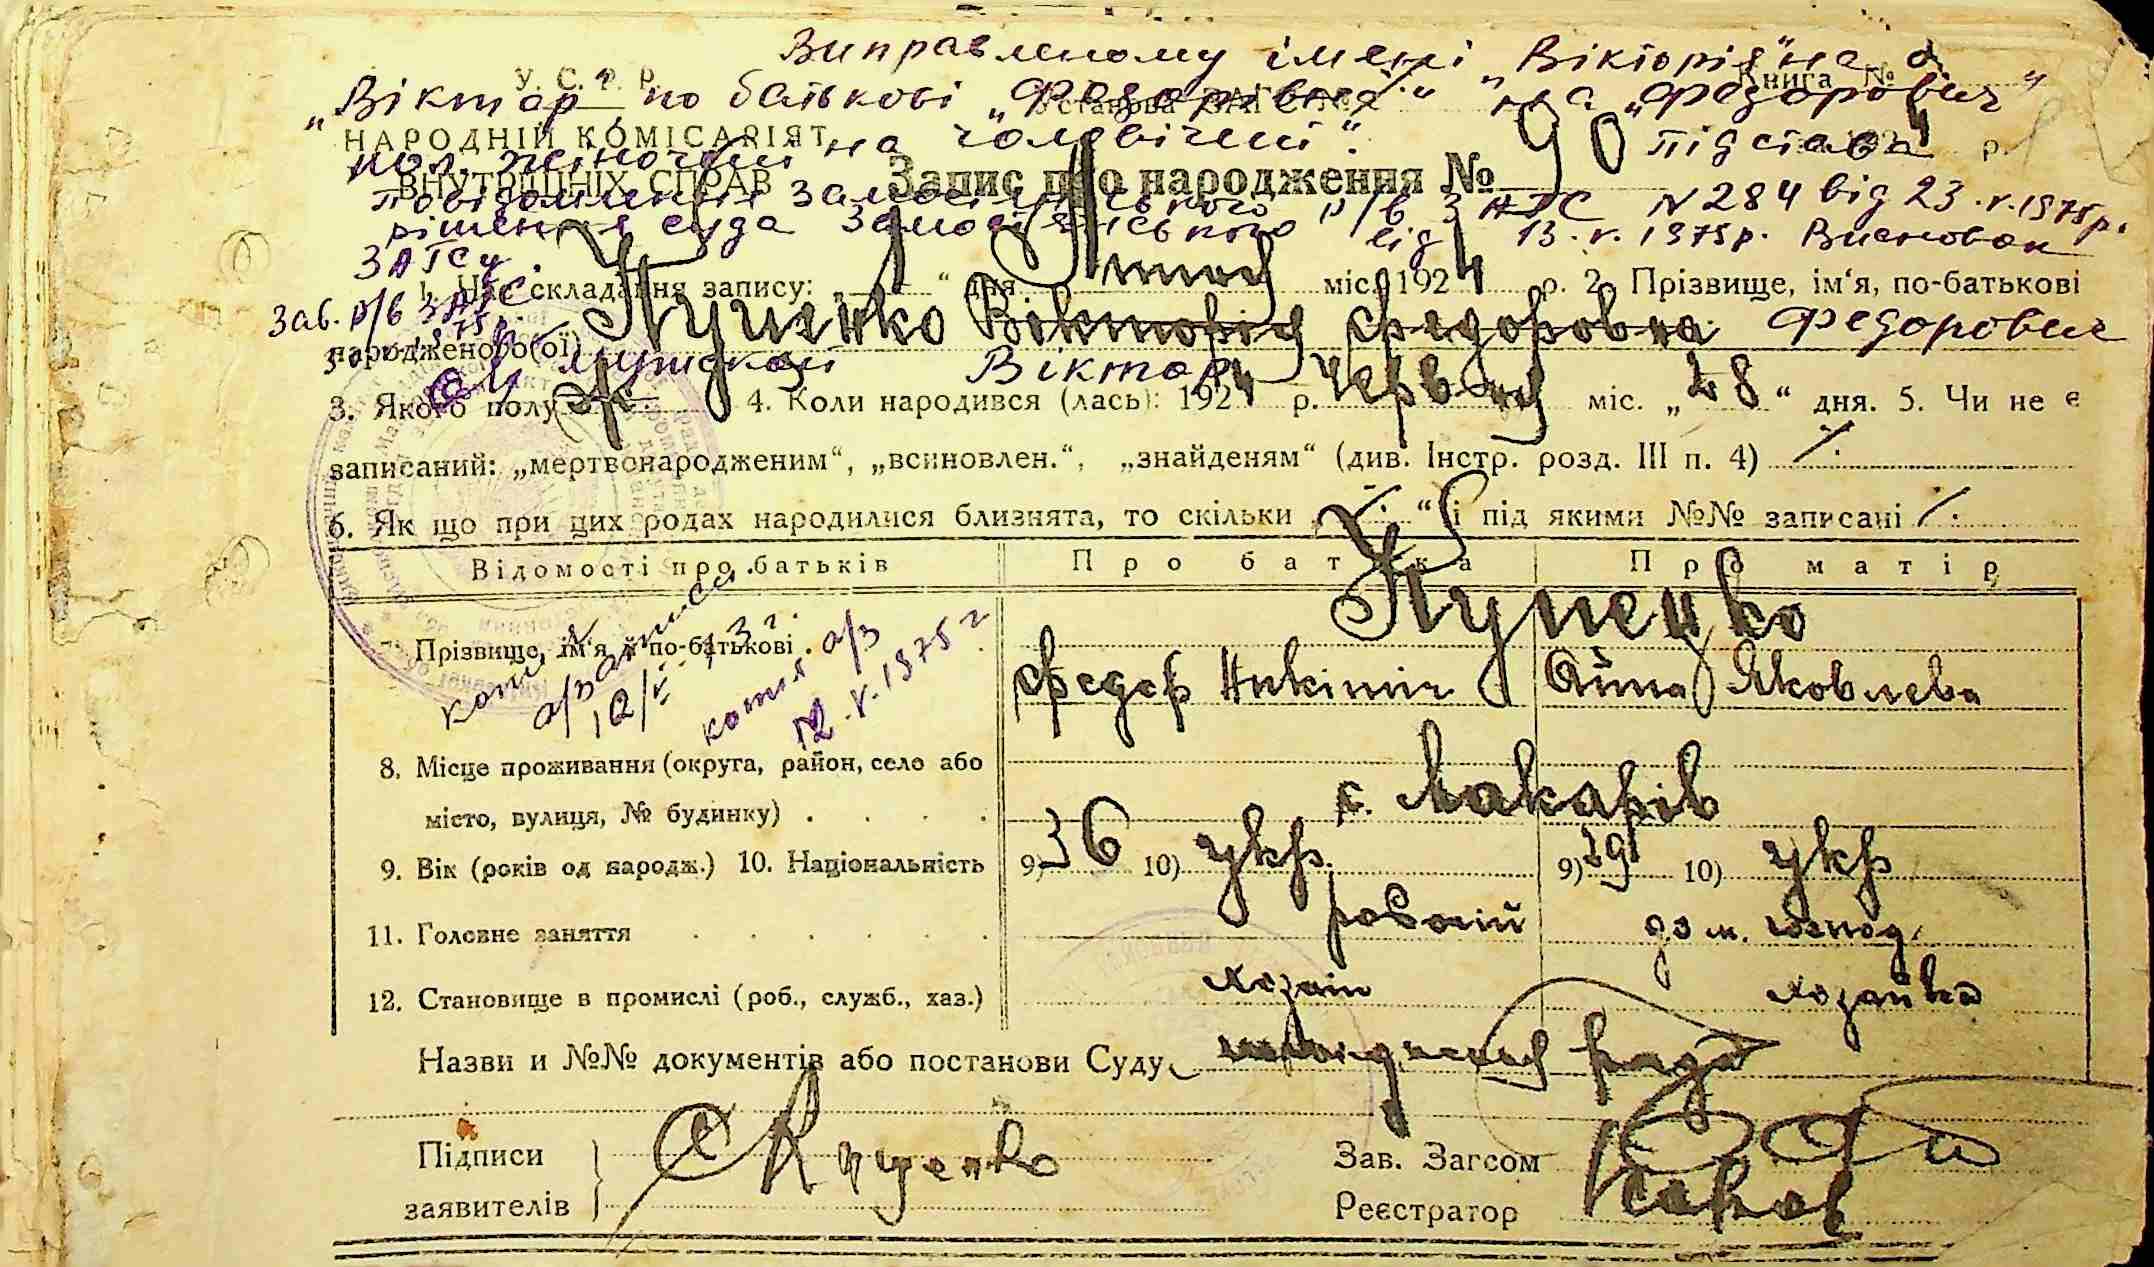 Виправленому імені „Вікторія" на
„Віктар по батькові „Федоровна" на „Федорович"
пол „жіночий на чоловічий".
підстава
повідомлення р/в ЗАГС N 284 від 23.V.1975р.
рішення суда від 13.V.1975р. Висновок
ЗАГСу
Зав. р/в ЗАГС
У. С. Р. Р.
НАРОДНІЙ КОМІСАРІЯТ
ВНУТРІШНІХ СПРАВ
Книга №
Установа ЗАГС'у
192 4 р.
Запис про народження № 90
1. Час складання запису: „ 1 " дня міс. 192 4 р. 2. Прізвище, ім'я, по-батькові
народженого(ої) Куценко Вікторія Федоровна Федорович
мужской Віктар
3. Якого полу 4. Коли народився (лась): 192 4 р. червня міс. „ 28 " дня. 5. Чи не є
записаний: „мертвонародженим", „всиновлен.", „знайденям" (див. Інстр. розд. III п. 4) /.
6. Як що при цих родах народилися близнята, то скільки „ /. " і під якими №№ записані /.
Відомості про батьків Про батька Про матір
7. Прізвище, ім'я й по-батькові . Куценко
Федор Никітич Анна Яковлева
копія а/записа
копія а/з
12.V.1975 г
8. Місце проживання (округа, район, село або
місто, вулиця, № будинку) . . . . с. Макарів
9. Вік (років од народж.) 10. Національність 9) 36 10) укр. 9) 29 10) укр
11. Головне заняття . . . . . . робочій дом. господ.
12. Становище в промислі (роб., служб., хаз.) хозаін хозайка
Назви и №№ документів або постанови Суду рада
Підписи
заявителів } Куценко
Зав. Загсом
Реєстратор